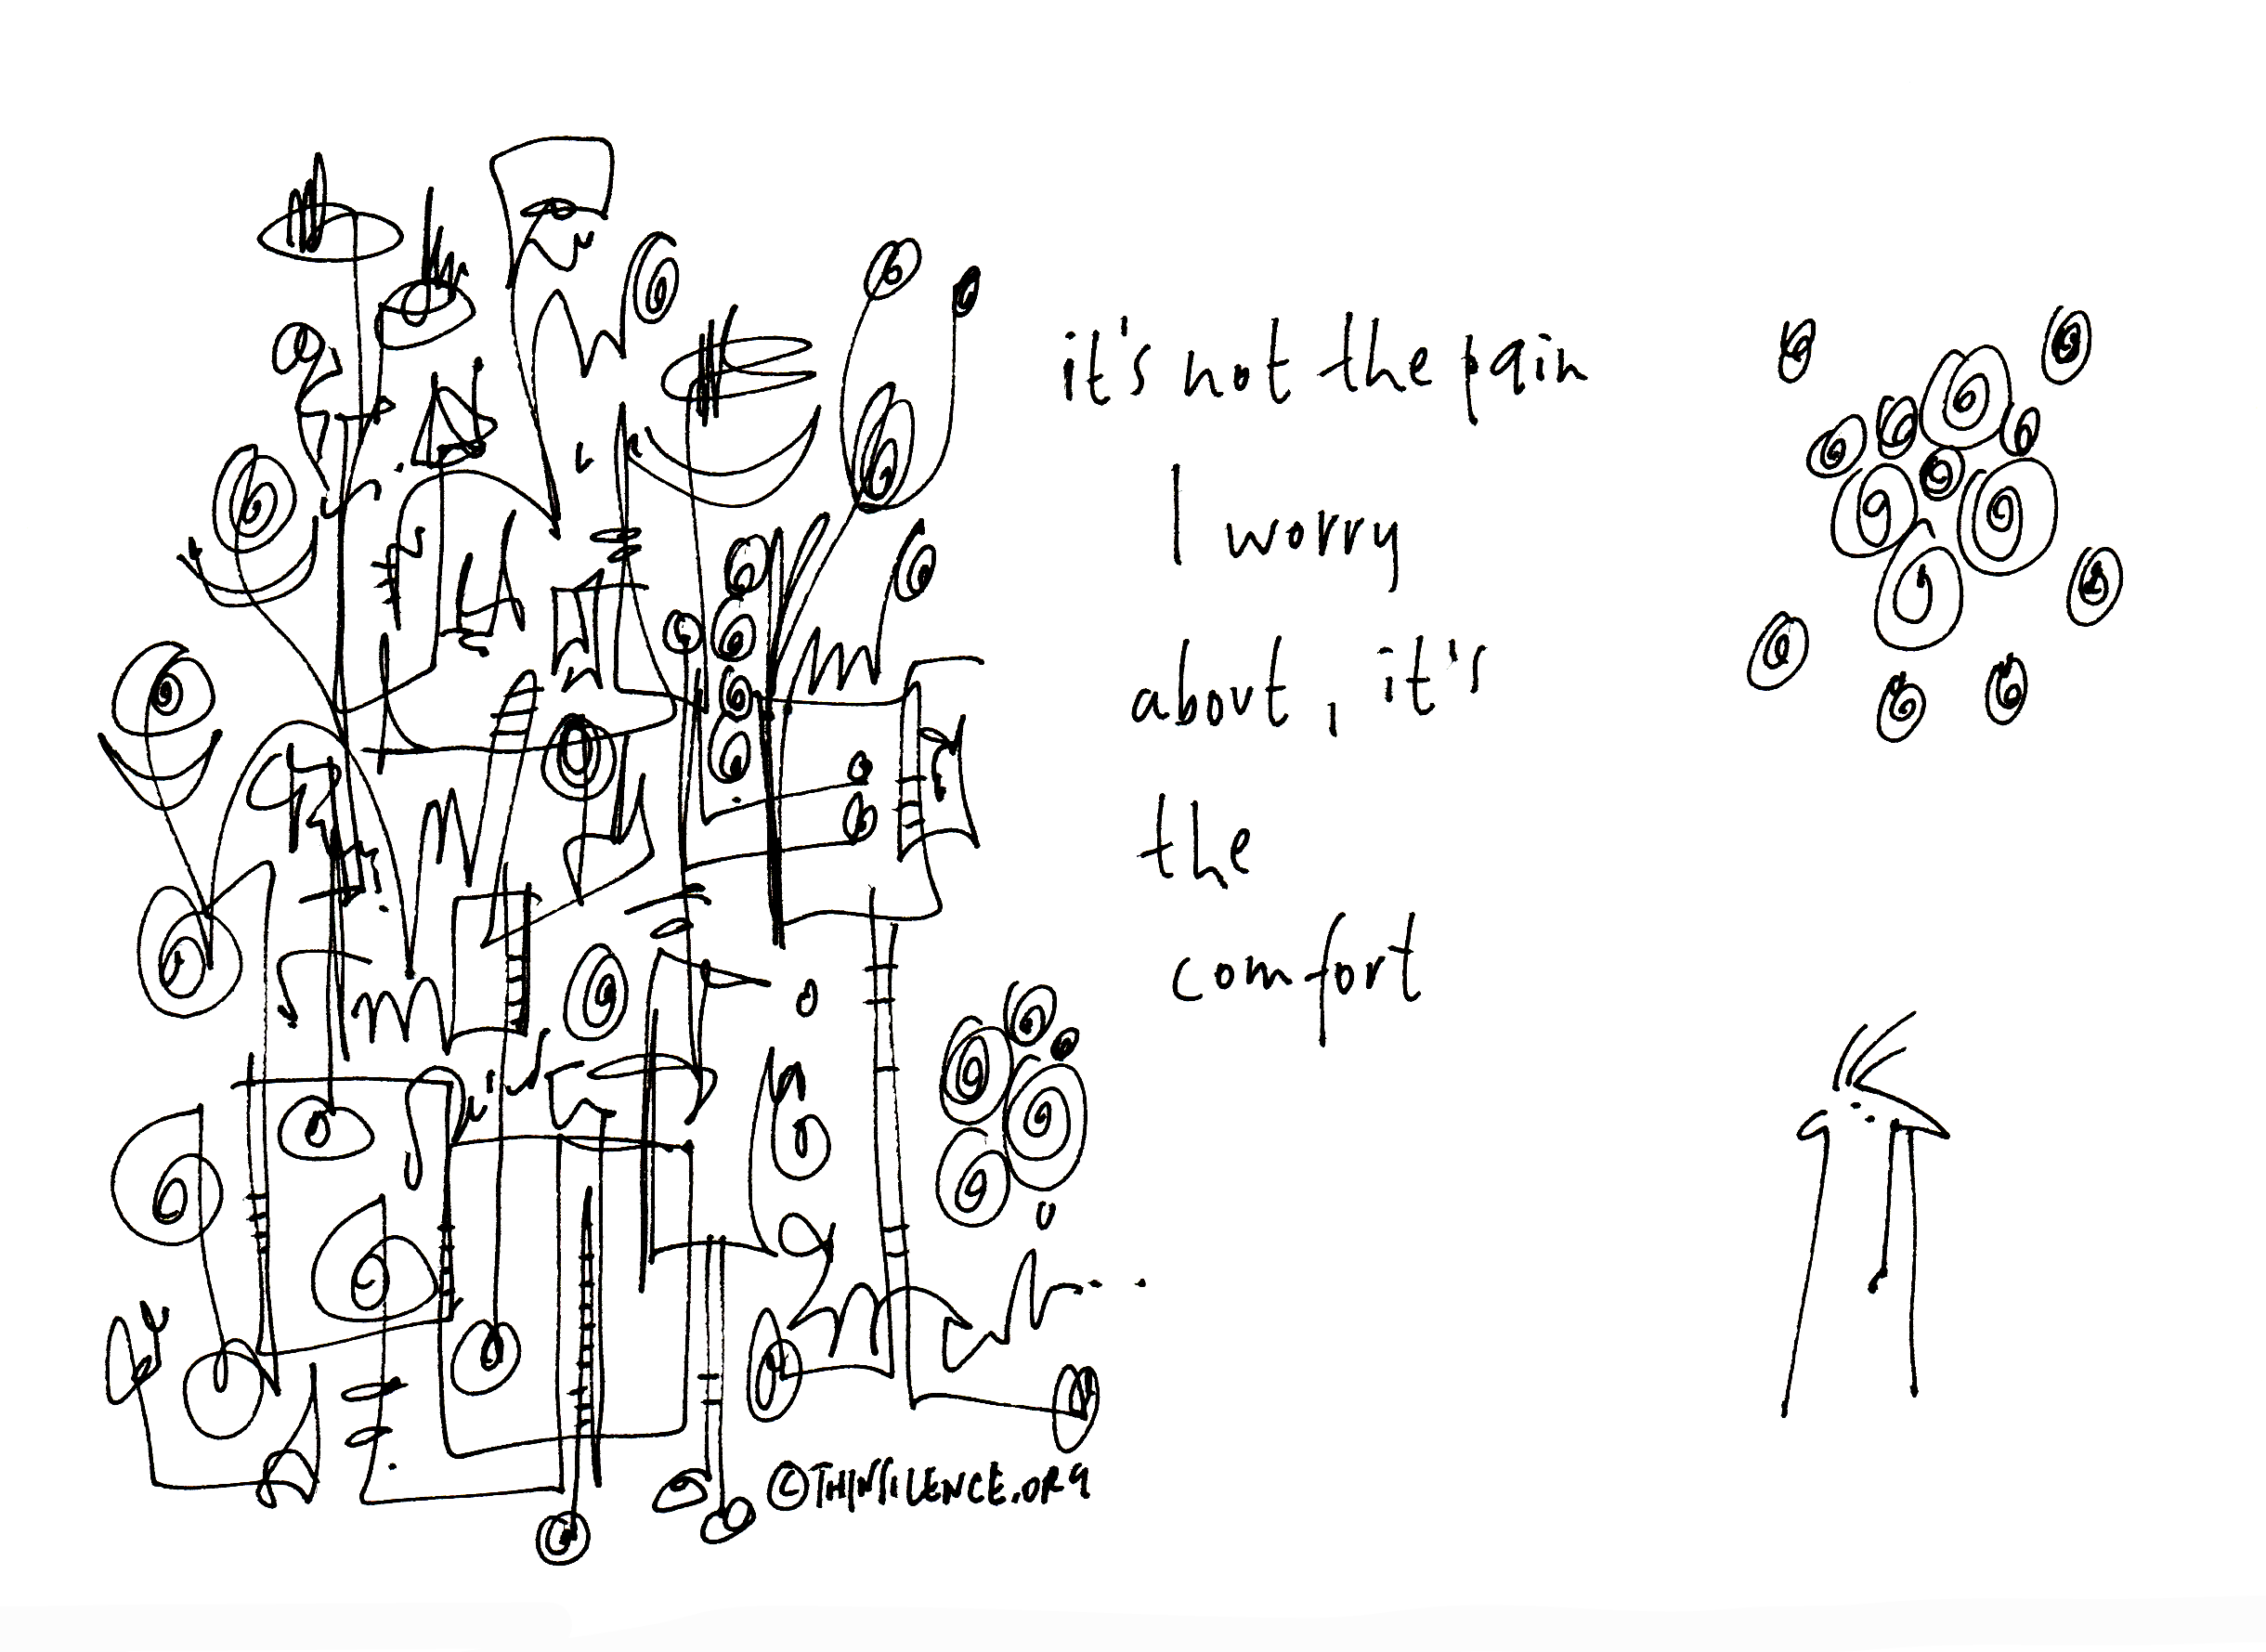 it's not the pain
I worry
about, it's
the
comfort
©THINSILENCE.ORG